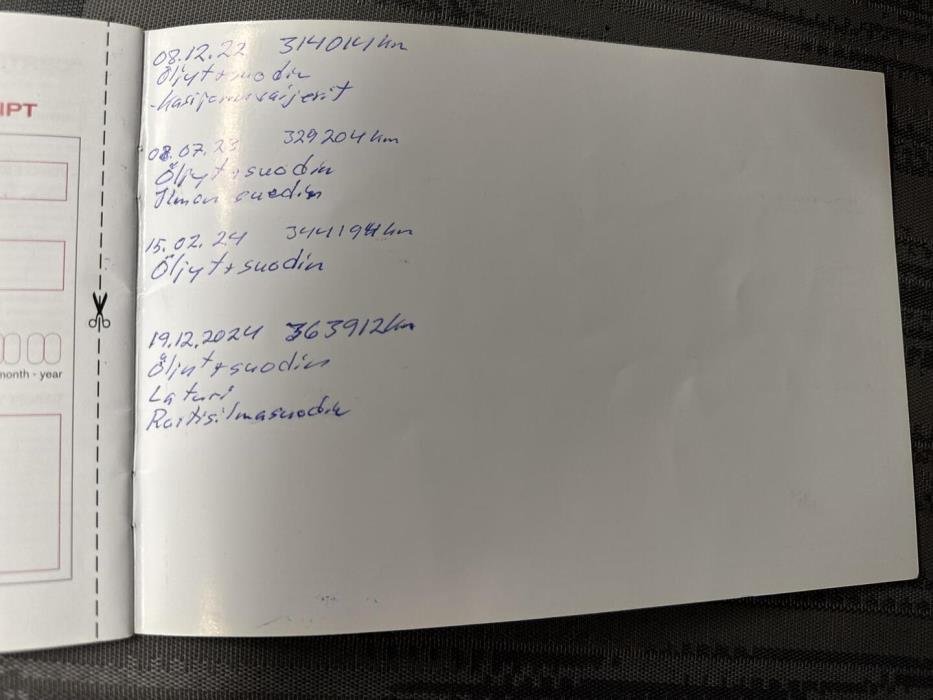 IPT
month - year
08.12.22 314014km
Öljyt+suodin
-Käsijarruvaijerit
08.07.23 329204km
Öljyt+suodin
Ilman suodin
15.02.24 344194km
Öljyt+suodin
19.12.2024 363912km
Öljyt+suodin
Laturi
Raitisilmasuodin